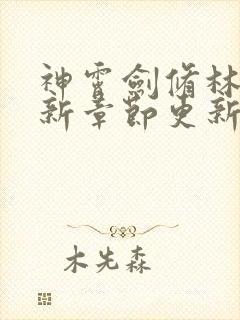 神霄劍脩林
新章節更新
木先森